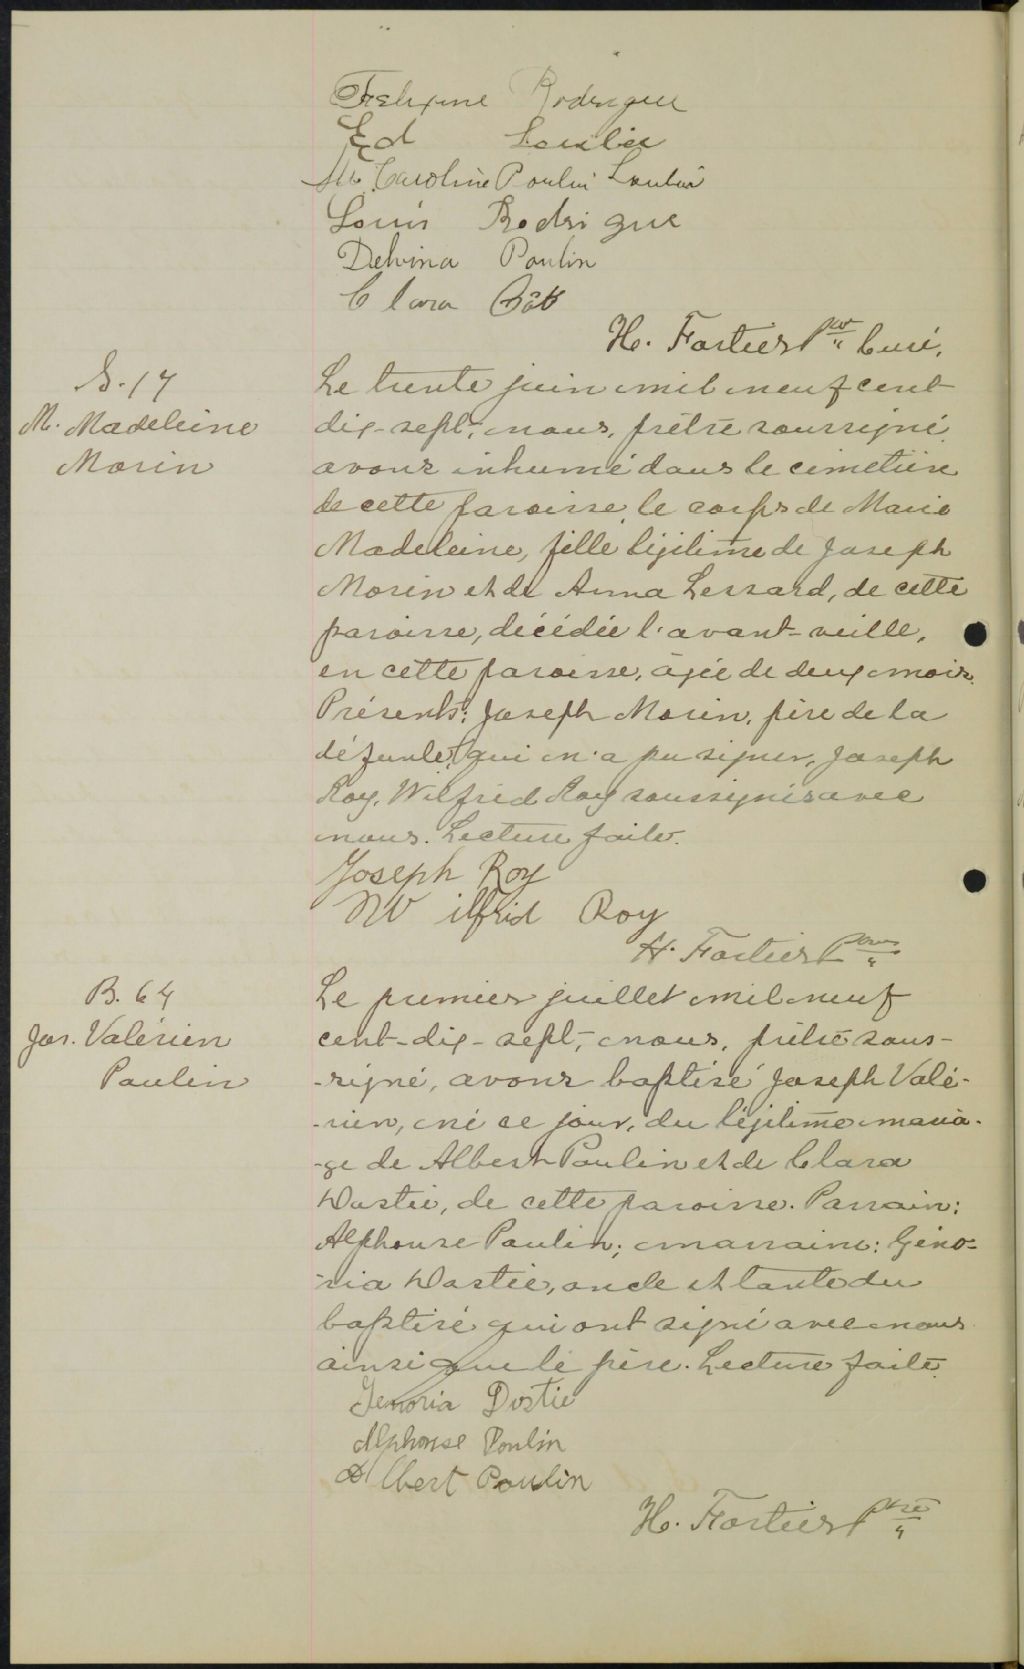 Rodrigue
Ed Loubier
Caroline Poulin Loubier
Louis Rodrigue
Delvina Poulin
Clara
H. Fortier Ptre Curé.
S. 17
M. Madeleine
Morin
Le trente juin mil neuf cent
dix-sept, nous, prêtre soussigné
avons inhumé dans le cimetière
de cette paroisse, le corps de Marie
Madeleine, fille légitime de Joseph
Morin et de Anna Lessard, de cette
paroisse, décédée l'avant-veille,
en cette paroisse, âgée de deux mois.
Présents: Joseph Morin, père de la
défunte, qui n'a pu signer, Joseph
Roy, Wilfrid Roy soussignés avec
nous. Lecture faite.
Joseph Roy
Wilfrid Roy
H. Fortier Ptre
B. 64
Jos. Valérien
Poulin
Le premier juillet mil neuf
cent-dix-sept, nous, prêtre sous-
-signé, avons baptisé Joseph Valé-
-rien, né ce jour, du légitime maria-
-ge de Albert Poulin et de Clara
Dostie, de cette paroisse. Parrain:
Alphonse Poulin; marraine: Géno-
-ria Dostie, oncle et tante du
baptisé qui ont signé avec nous
ainsi que le père. Lecture faite.
Genoria Dostie
Alphonse Poulin
Albert Poulin
H. Fortier Ptre